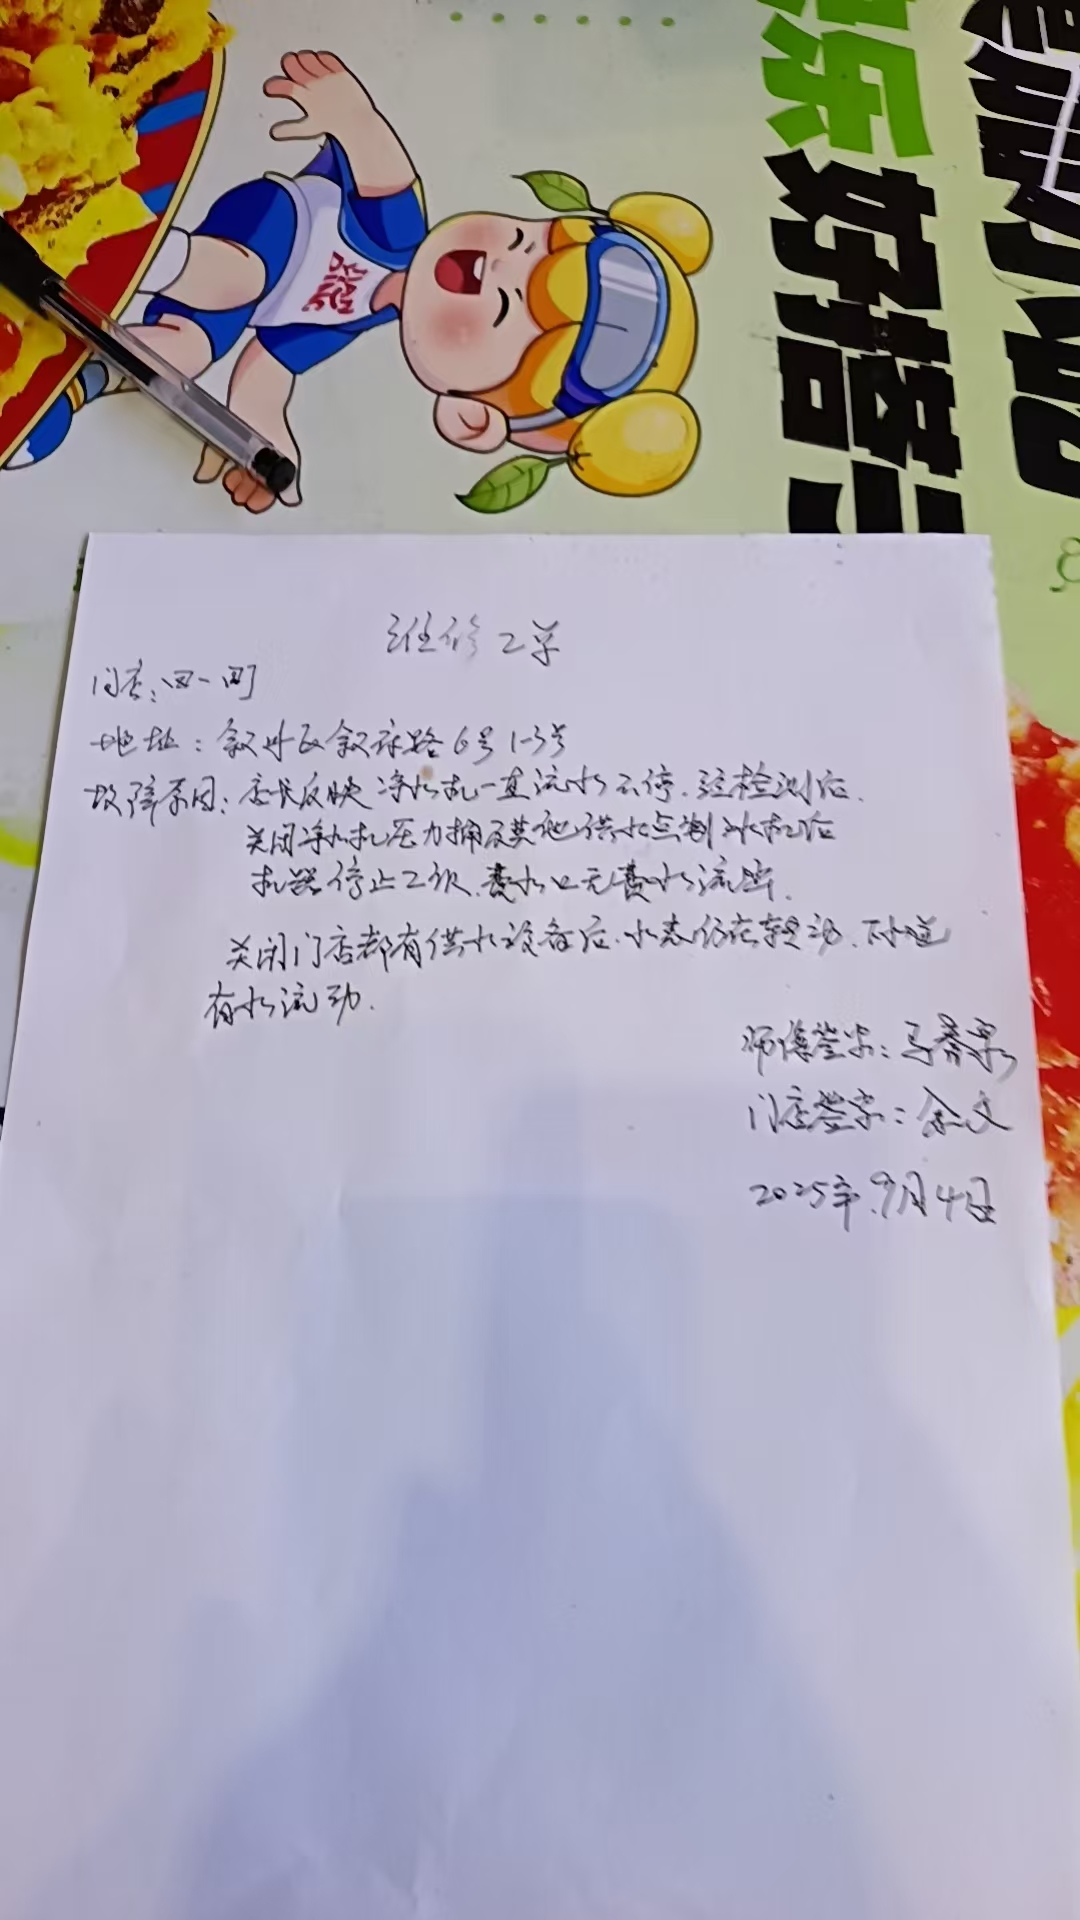 维修工单
门店：四一町
地址：叙州区叙府路6号1-3号
故障原因：店长反映净水机一直流水不停.经检测后.
关闭净水机压力桶及其他供水点制冰机后
机器停止工作.费水口无费水流出.
关闭门店都有供水设备后.水表仍在转动.下水道
有水流动.
师傅签字：马春泉
门店签字：余文
2025年.9月4日
乐好搭